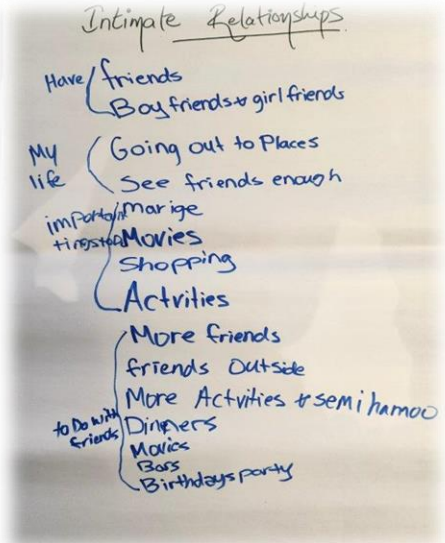 Intimate Relationships
Have friends
Boyfriends & girlfriends
My life Going out to Places
See friends enough
important marige
tingstoDo Movies
Shopping
Actvities
More friends
friends Outside
More Actvities & semihamoo
to Do with friends Dinners
Movies
Bars
Birthdays party